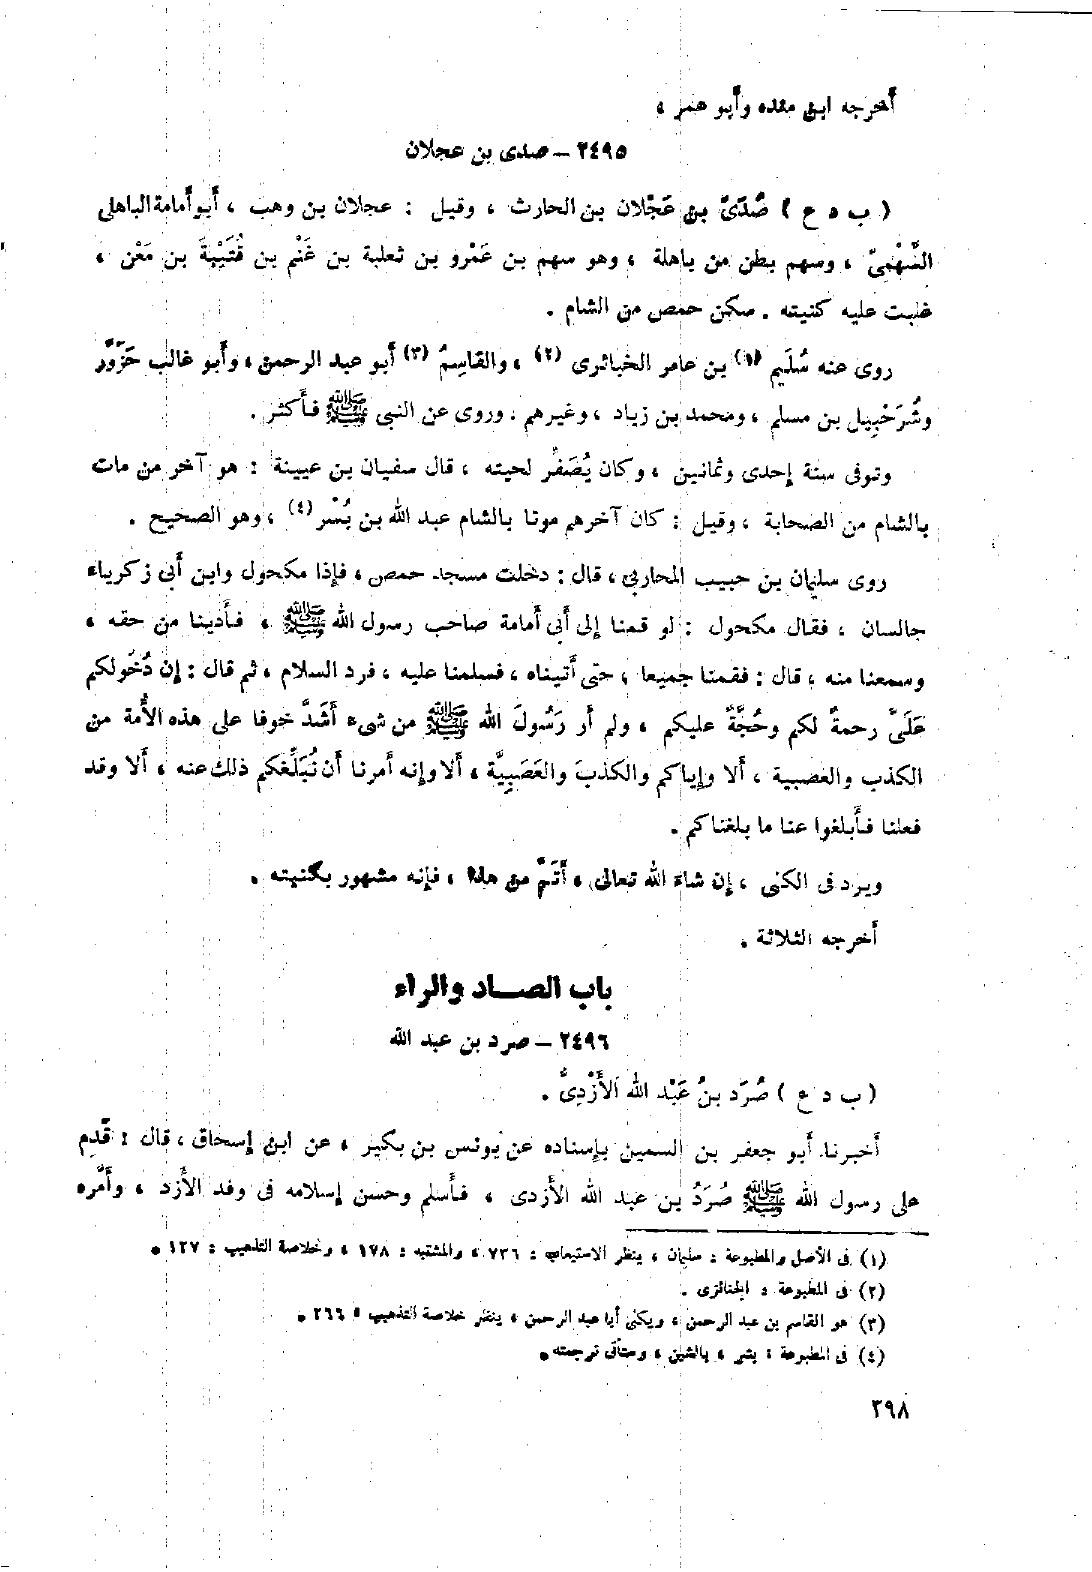 أخرجه ابن منده وأبو عمر ،
٢٤٩٥ – صدى بن عجلان
( ب د ع ) صُدَىّ بن عَجْلان بن الحارث ، وقيل : عجلان بن وهب ، أبو أمامة الباهلى
السَّهْمِىّ ، وسهم بطن من باهلة ، وهو سهم بن عَمْرو بن ثعلبة بن غَنْم بن قُتَيْبَة بن مَعْن ،
غلبت عليه كنيته . سكن حمص من الشام .
روى عنه سُلَيم (١) بن عامر الخبائرى (٢) ، والقاسِمُ (٣) أبو عبد الرحمن ، وأبو غالب حَزَوَّر
وشُرَحْبِيل بن مسلم ، ومحمد بن زياد ، وغيرهم . وروى عن النبى ﷺ فأكثر .
وتوفى سنة إحدى وثمانين ، وكان يُصَفِّر لحيته ، قال سفيان بن عيينة : هو آخر من مات
بالشام من الصحابة ، وقيل : كان آخرهم موتا بالشام عبد الله بن بُسْر (٤) ، وهو الصحيح .
روى سليمان بن حبيب المحاربى ، قال : دخلت مسجد حمص ، فإذا مكحول وابن أبى زكرياء
جالسان ، فقال مكحول : لو قمنا إلى أبى أمامة صاحب رسول الله ﷺ ، فأدينا من حقه ،
وسمعنا منه ، قال : فقمنا جميعا ، حتى أتيناه ، فسلمنا عليه ، فرد السلام ، ثم قال : إن دُخولكم
عَلَىَّ رحمةٌ لكم وحُجَّةٌ عليكم ، ولم أر رَسُولَ الله ﷺ من شىء أَشَدَّ خوفا على هذه الأُمة من
الكذب والعصبية ، ألا وإياكم والكذبَ والعَصَبِيَّة ، ألا وإنه أمرنا أن نُبَلِّغكم ذلك عنه ، ألا وقد
فعلنا فأبلغوا عنا ما بلغناكم .
ويرد فى الكنى ، إن شاء الله تعالى ، أَتَمَّ من هذا ، فإنه مشهور بكنيته .
أخرجه الثلاثة .
باب الصاد والراء
٢٤٩٦ – صرد بن عبد الله
( ب د ع ) صُرَد بنُ عَبْد الله الأَزْدِىُّ .
أخبرنا أبو جعفر بن السمين بإسناده عن يونس بن بكير ، عن ابن إسحاق ، قال : قَدِم
على رسول الله ﷺ صُرَدُ بن عبد الله الأزدى ، فأسلم وحسن إسلامه فى وفد الأزد ، وأَمَّره
(١) فى الأصل والمطبوعة : سليمان ، ينظر الاستيعاب : ٧٣٦ ، والمشتبه : ١٧٨ ، وخلاصة التذهيب : ١٢٧ .
(٢) فى المطبوعة : الجنائزى .
(٣) هو القاسم بن عبد الرحمن ، ويكنى أبا عبد الرحمن ، ينظر خلاصة التذهيب : ٢٦٦ .
(٤) فى المطبوعة : بشر ، بالشين ، وستأتى ترجمته .
٢٩٨